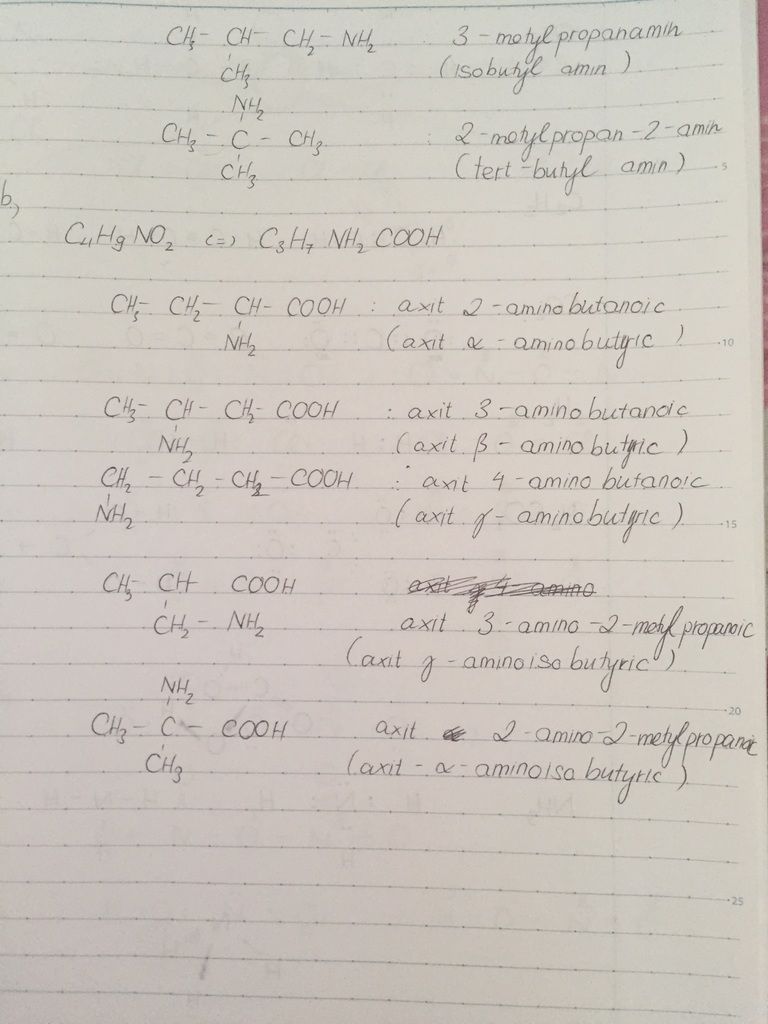 CH3- CH- CH2- NH2 3-metylpropanamin
CH3 (isobutyl amin)
NH2
CH3 - C - CH3 : 2-metylpropan-2-amin
CH3 (tert-butyl amin)
b,
C4H9NO2 (=) C3H7 NH2 COOH
CH3- CH2- CH- COOH : axit 2-aminobutanoic
NH2 (axit α-aminobutyric)
CH3- CH- CH2- COOH : axit 3-aminobutanoic
NH2 (axit β-aminobutyric)
CH2 - CH2- CH2-COOH : axit 4-aminobutanoic
NH2 (axit γ-aminobutyric)
CH3- CH COOH
CH2- NH2 axit 3-amino-2-metylpropanoic
(axit γ-aminoisobutyric)
NH2
CH3- C- COOH axit 2-amino-2-metylpropanoic
CH3 (axit-α-aminoisobutyric)
5
10
15
20
25